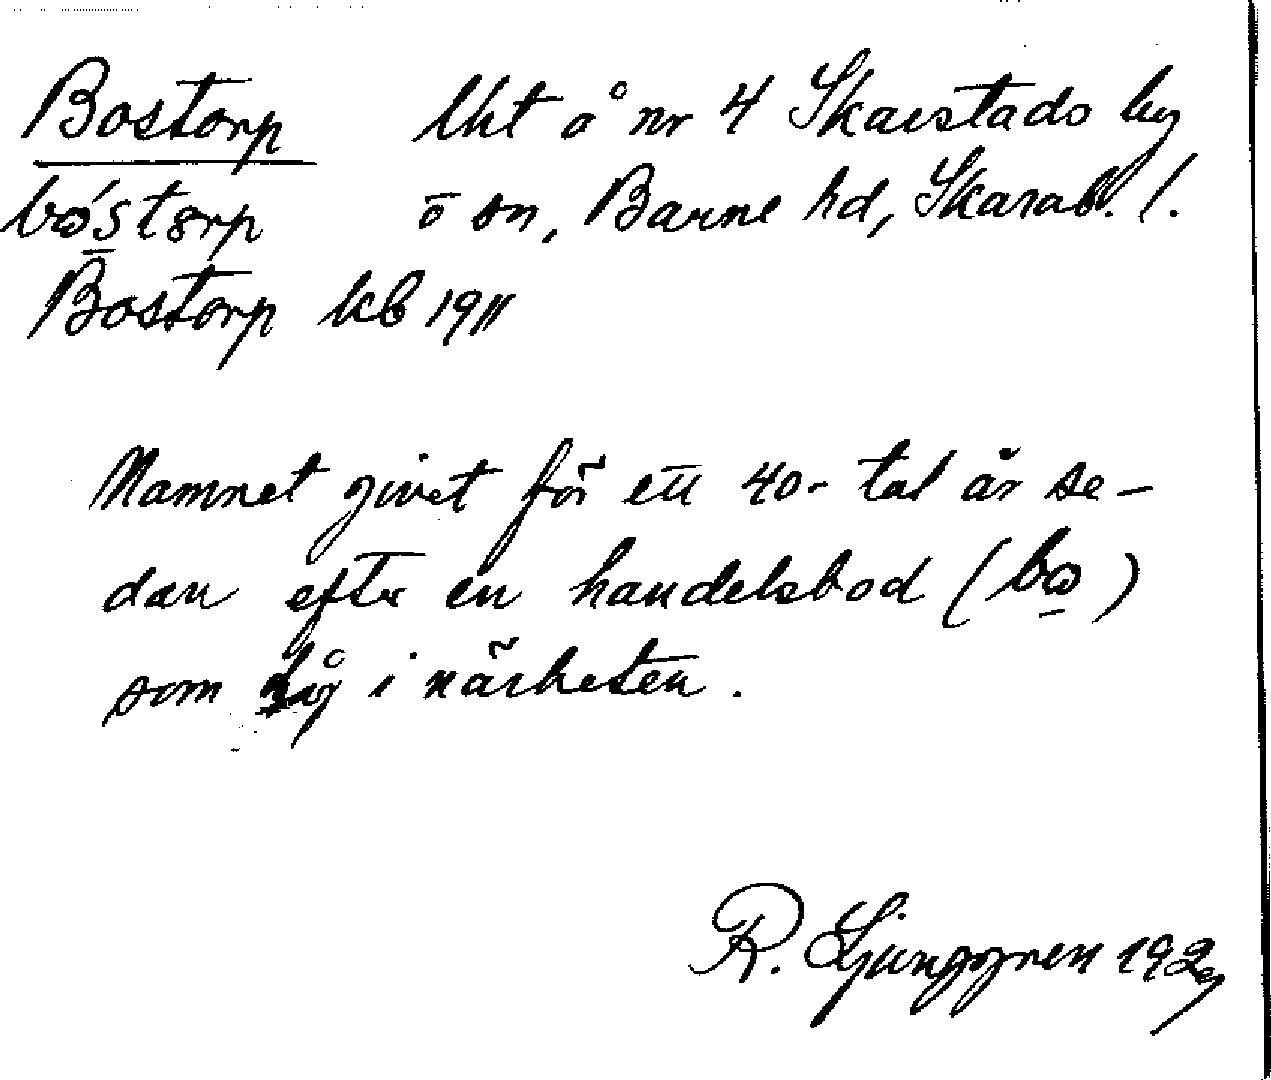 Bostorp lht å nr 4 Skarstads by
bωstorp o sn, Barne hd, Skarab. l.
Bostorp kb 1911
Namnet givet för ett 40-tal år se-
dan efter en handelsbod (bω)
som låg i närheten.
R. Ljunggren 192